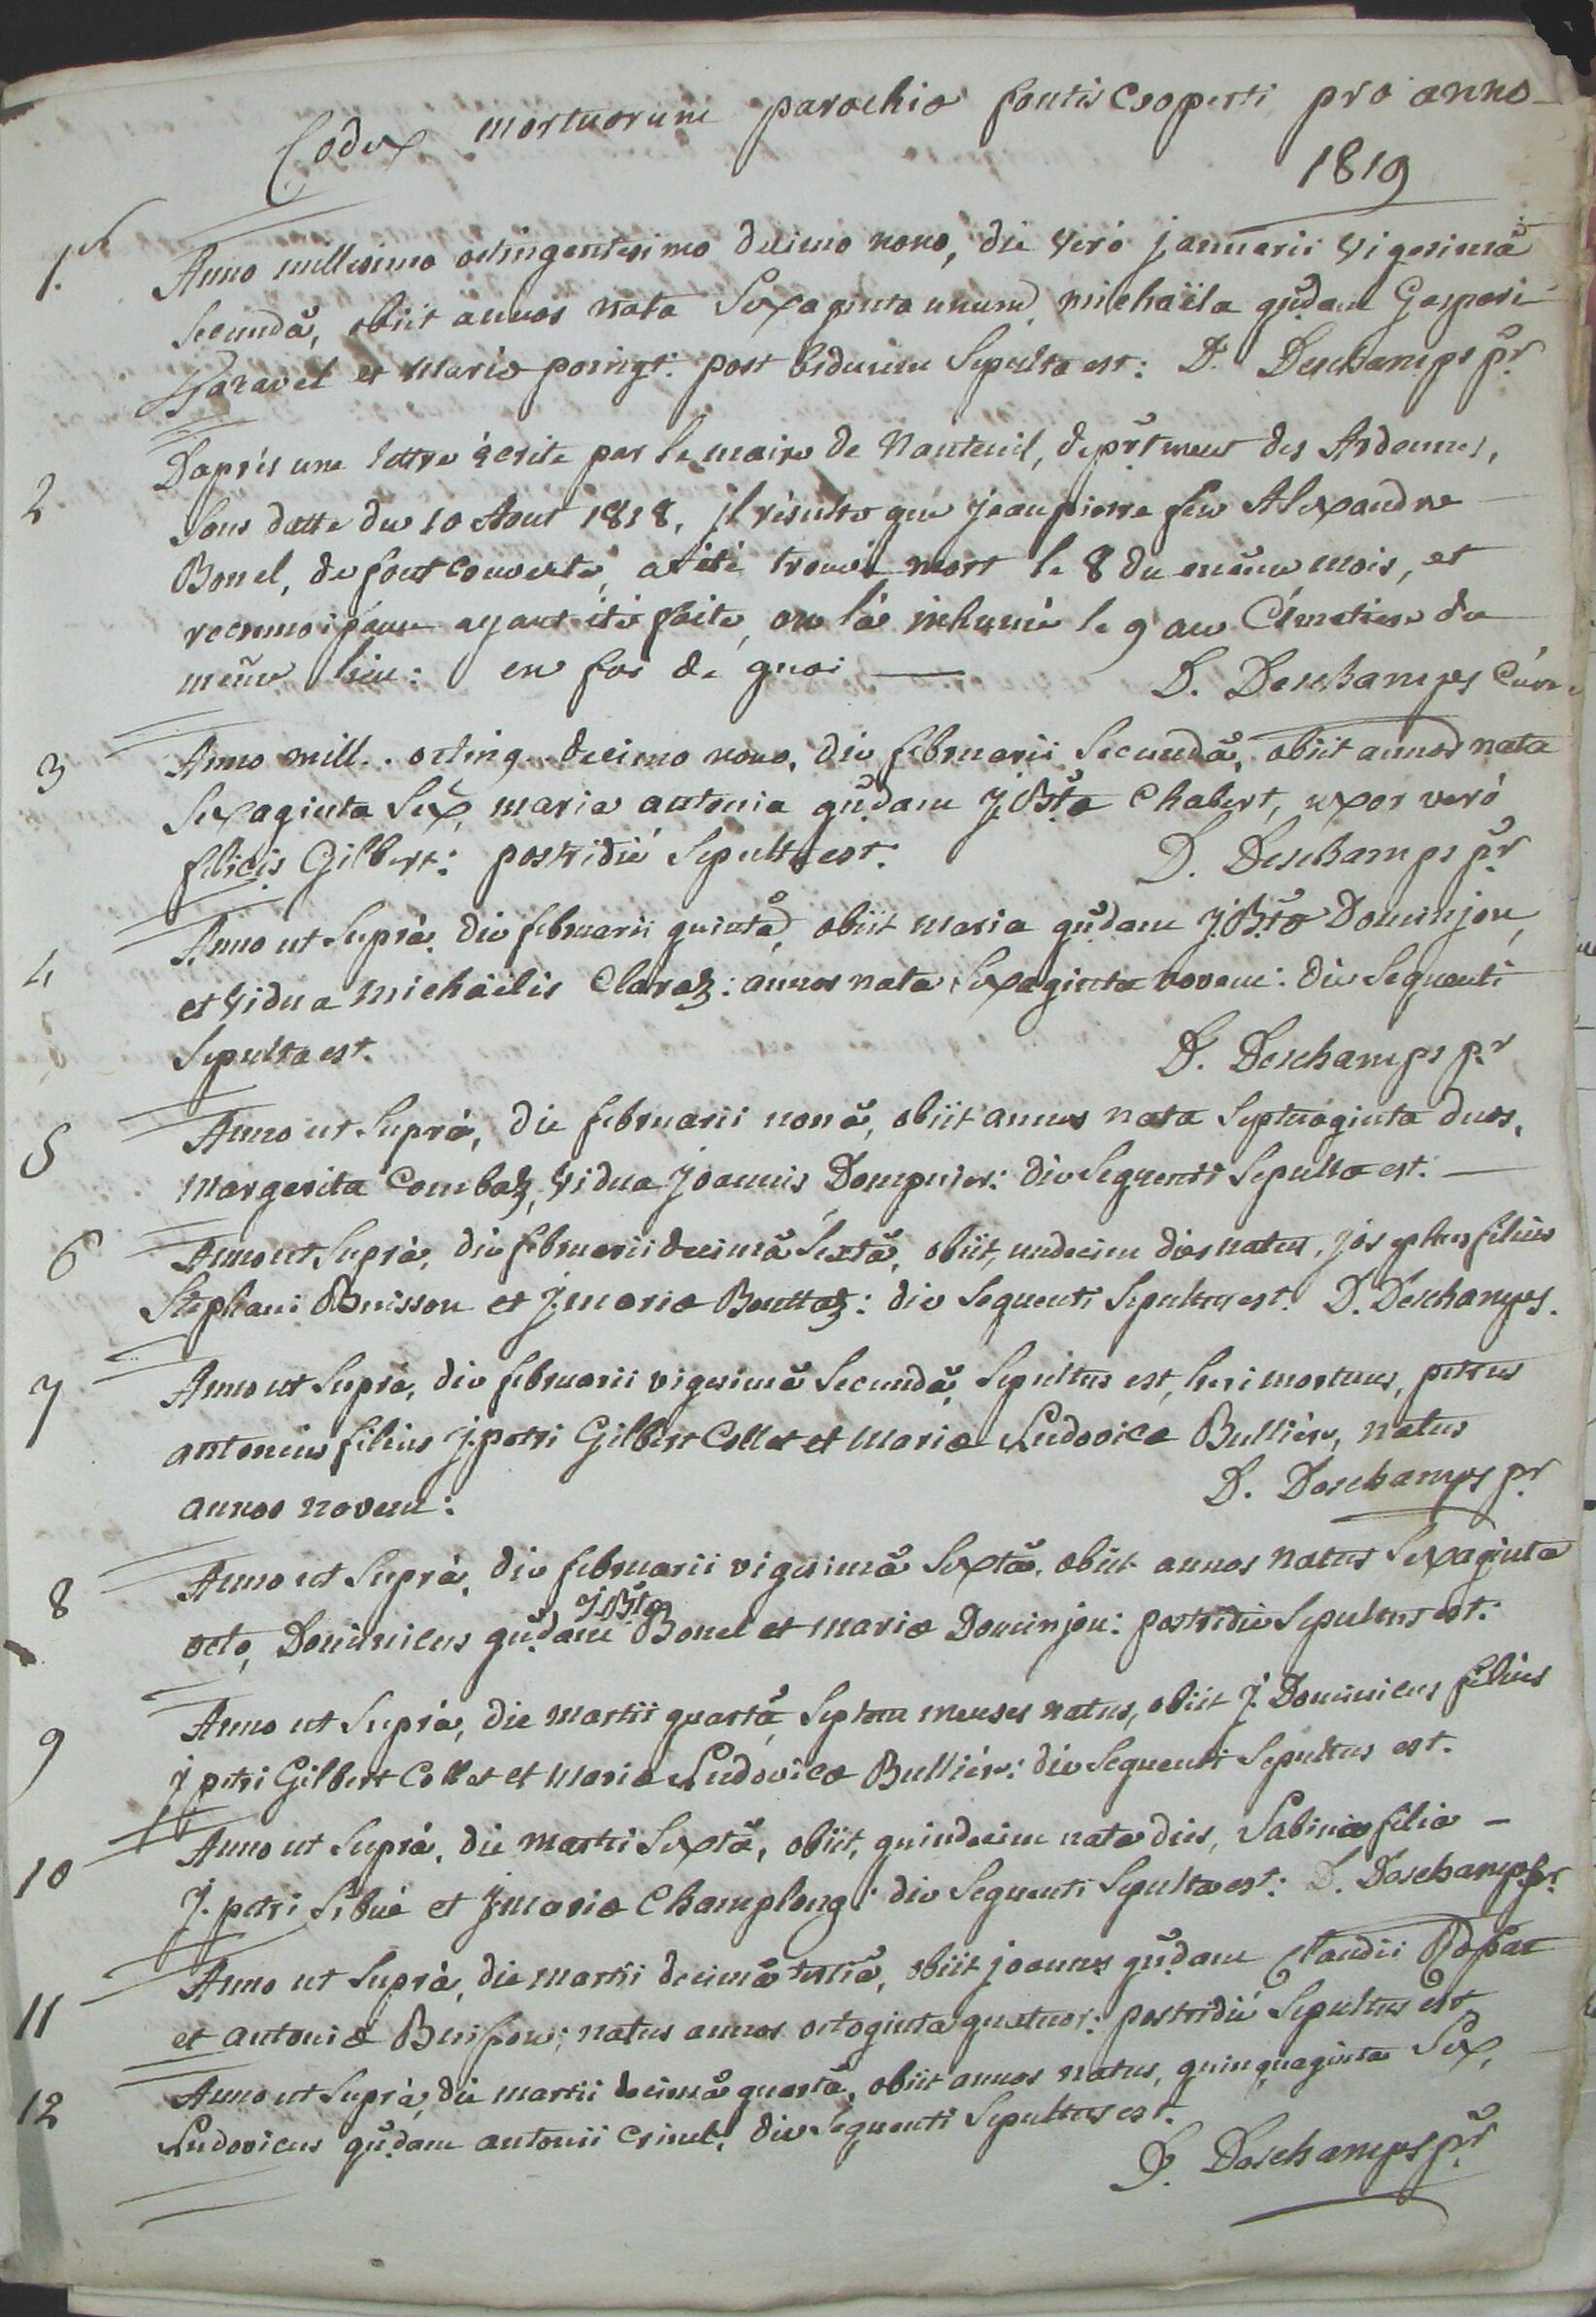 Codex mortuorum parochiæ fontis Cooperti pro anno
1819
1.
Anno millesimo octingentesimo decimo nono, die verò januarii vigesimâ
Secundâ, obiit annos nata Sexaginta unum, michaëla qudam Gaspari
et Mariæ poingt: post biduum Sepulta est: D. Deschamps pr
2
D'après une lettre écrite par le maire de Nanteuil, deprtment des Ardennes,
Sous datte du 10 Aout 1818, jl résulte que jean pierre feu Alexandre
Bonel, de fontcouverte, a été trouvé mort le 8 du même mois, et
reconnoissance ayant été faite, on l'a inhumé le 9 au Cimetiere du
même lieu: en foi de quoi — D. Deschamps Curé
3
Anno mill.. octing.. decimo nono, die februarii Secundâ, obiit annos nata
Sexaginta Sex, maria antonia qudam J.Btæ Chabert, uxor verò
felicis Gilbert: postridiè Sepulta est: D. Deschamps pr
4
Anno ut Suprà, die februarii quintâ, obiit maria qudam J.Btæ Dominjon,
et vidua Michäelis Claraz: annos nata Sexaginta novem: die Sequenti
Sepulta est. D. Deschamps pr
5
Anno ut Suprà, die februarii nonâ, obiit annos nata Septuaginta duos,
Margarita Combaz, vidua joannis Dompnier: die Sequenti Sepulta est. —
6
Anno ut Suprà, die februarii decimâ Sextâ, obiit, undecim dies natus, josephus filius
Stephani Buisson et J.mariæ Bouttaz: die Sequenti Sepultus est. D. Deschamps.
7
Anno ut Suprà, die februarii vigesimâ Secundâ, Sepultus est, heri mortuus, petrus
antonius filius J.petri Gilbert Collet et Mariæ Ludovicæ Bullièr, natus
annos novem: D. Deschamps pr
8
Anno ut Suprà, die februarii vigesimâ Sextâ, obiit annos natus Sexaginta
J.Btæ
octo, Dominicus qudam Bonel et mariæ Dominjon: postridie Sepultus est.
9
Anno ut Suprà, die martii quartâ, Septem menses natus, obiit J. Dominicus filius
J petri Gilbert Collet et Mariæ Ludovicæ Bullièr: die Sequenti Sepultus est.
10
Anno ut Suprà, die martii Sextâ, obiit, quindecim nata dies, Sabina filia —
J. petri Sibué et J.mariæ Champlong: die Sequenti Sepulta est: D. Deschamps pr
11
Anno ut Suprà, die martii decimâ tertiâ, obiit joannes qudam Claudii
et antoniæ Buisson; natus annos octoginta quatuor: postridiè Sepultus est
12
Anno ut Suprà, die martii decimâ quartâ, obiit annos natus, quinquaginta Sex,
Ludovicus qudam antonii Crinel: die Sequenti Sepultus est.
D. Deschamps pr